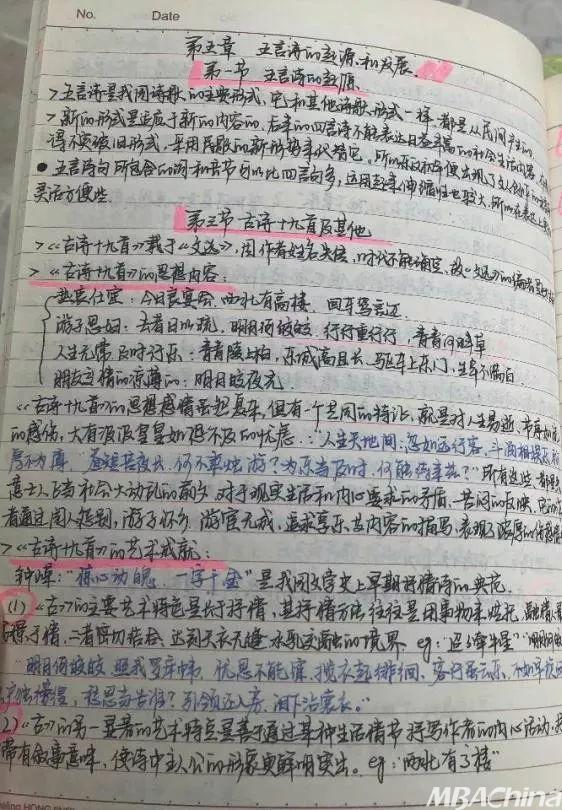 No.
Date
第五章 五言诗的起源和发展.
第一节 五言诗的起源.
>五言诗是我国诗歌的主要形式, 它和其他诗歌形式一样 都是从民间产生的.
>新的形式是适应于新的内容的, 后来的四言诗不能表达日益丰富的社会生活内容,
得不突破旧形式, 采用民歌的新形势来代替它, 所以东汉初年便出现了文人
●五言诗句所包含的词和音节可以比四言的多, 运用起来伸缩性也较大, 所以在表达上
灵活方便些.
第三节 古诗十九首及其他
>《古诗十九首》载于《文选》, 因作者姓名失传, 时代不能确定, 故《文选》的编者
>《古诗十九首》的思想内容:
热衷仕宦: 今日良宴会 西北有高楼 回车驾言迈
游子思妇: 去者日以疏, 明月何皎皎, 行行重行行, 青青河畔草
人生无常 及时行乐: 青青陵上柏, 东城高且长 驱车上东门, 生年不满百.
朋友交情的凉薄的: 明月皎夜光
《古诗十九首》的思想感情虽然复杂, 但有一个共同的特征, 就是对人生易逝
的感伤, 大有汲汲皇皇如恐不及的忧虑. "人生天地间, 忽如远行客, 斗酒相娱乐
厚不为薄" "昼短苦夜长, 何不秉烛游? 为乐当及时, 何能待来兹?" 所有这些,
意士人当社会大动乱的前夕 对于现实生活和内心要求的矛盾、苦闷的反映,
者通过闺人怨别, 游子怀乡 游宦无成, 追求享乐, 等内容的描写, 表现了浓厚的伤感情
>《古诗十九首》的艺术成就:
钟嵘: "惊心动魄, 一字千金" 是我国文学史上早期抒情诗的典范.
(1)《古》的主要艺术特色是长于抒情, 其抒情方法往往是用事物来烘托, 融情
景于情, 二者密切结合 达到天衣无缝 水乳交融的境界. eg: "迢迢牵牛星"
"明月何皎皎 照我罗床帏 忧愁不能寐, 揽衣起徘徊. 客行虽云乐, 不如早旋
彷徨, 愁思当告谁? 引领还入房, 泪下沾裳衣."
(2)《古》的另一显著的艺术特点是善于通过某种生活情节 抒写作者的内心活动,
带有叙事意味, 使诗中主人公的形象更鲜明突出. eg: "西北有高楼"
MBAChina